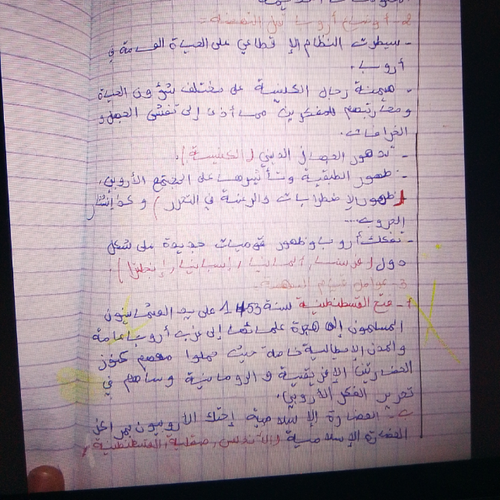 2- أوضاع أوروبا قبل النهضة:
- سيطرت النظام الإقطاعي على الحياة العامة في
أوروبا.
- هيمنة رجال الكنيسة على مختلف شؤون الحياة
ومحاربتهم للمفكرين مما أدى إلى تفشي الجهل و
الخرافات.
- تدهور المجال الديني (الكنيسة).
- ظهور الطبقية وتأثيرها على المجتمع الأوروبي.
(ظهور الإضطرابات والرغبة في التحرر) وكذا إنتشار
الحروب...
- تفكك أوروبا وظهور قوميات جديدة على شكل
دول (فرنسا، ألمانيا، إسبانيا، إنجلترا).
3- عوامل قيام النهضة:
أ- فتح القسطنطينية لسنة 1453 على يد العثمانيون
المسلمون إلى هجرة علمائها إلى غرب أوروبا عامة
والمدن الإيطالية خاصة حيث حملوا معهم كنوز
الحضارتين الإغريقية و الرومانية وساهم في
تحرير الفكر الأوروبي.
ب- الحضارة الإسلامية إحتك الأوروبيون بمراكز
الحضارة الإسلامية والأندلس، صقلية، القسطنطينية